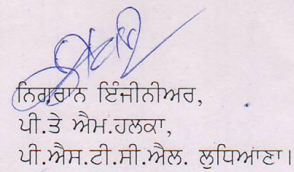 ਨਿਗਰਾਨ ਇੰਜੀਨੀਅਰ,
ਪੀ.ਤੇ ਐਮ.ਹਲਕਾ,
ਪੀ.ਐਸ.ਟੀ.ਸੀ.ਐਲ. ਲੁਧਿਆਣਾ।